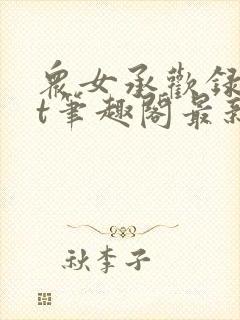 眾女承歡録
t筆趣閣最新
秋李子